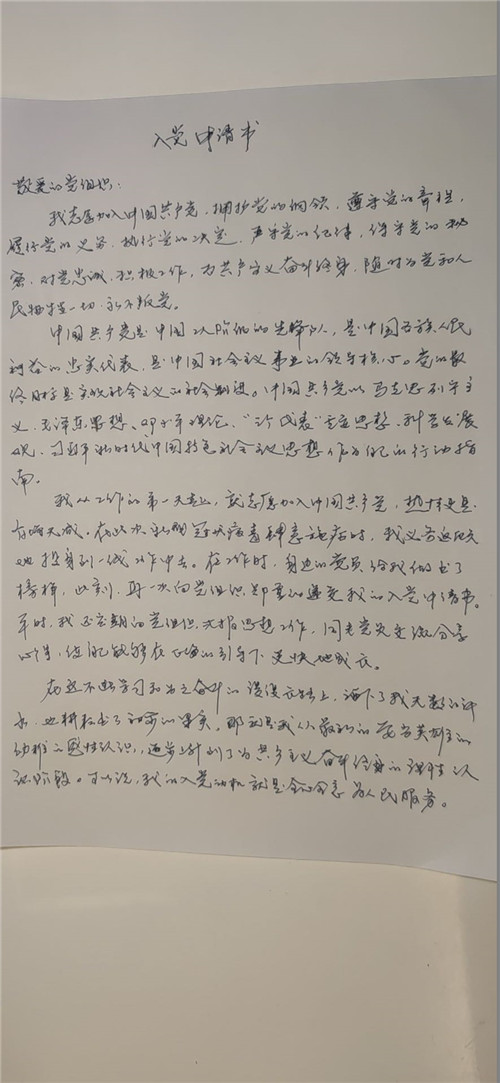 入党申请书
敬爱的党组织：
我志愿加入中国共产党，拥护党的纲领，遵守党的章程，
履行党的义务，执行党的决定，严守党的纪律，保守党的秘
密，对党忠诚，积极工作，为共产主义奋斗终身，随时为党和人
民牺牲一切，永不叛党。
中国共产党是中国工人阶级的先锋队，是中国各族人民
利益的忠实代表，是中国社会主义事业的领导核心。党的最
终目的是实现社会主义的社会制度。中国共产党以马克思列宁主
义、毛泽东思想、邓小平理论、“三个代表”重要思想、科学发展
观、习近平新时代中国特色社会主义思想作为自己的行动指
南。
我从工作的第一天起，就志愿加入中国共产党，热情更是
有增无减。在此次新型冠状病毒肆意施虐时，我义无返顾
地投身到一线工作中去。在工作时，身边的党员给我做出了
榜样，此刻，再一次向党组织郑重的递交我的入党申请书。
平时，我还定期的党组织汇报思想工作，同老党员交流分享
心得，使自己能够在正确的引导下更快地成长。
在这不断学习和为之奋斗的漫漫长路上，洒下了我无数的汗
水，也耕耘出了甜蜜的果实。那就是我从最初的
幼稚的感性认识，逐步上升到了为共产主义奋斗终身的理性认
识阶段。可以说，我的入党动机就是全心全意为人民服务。